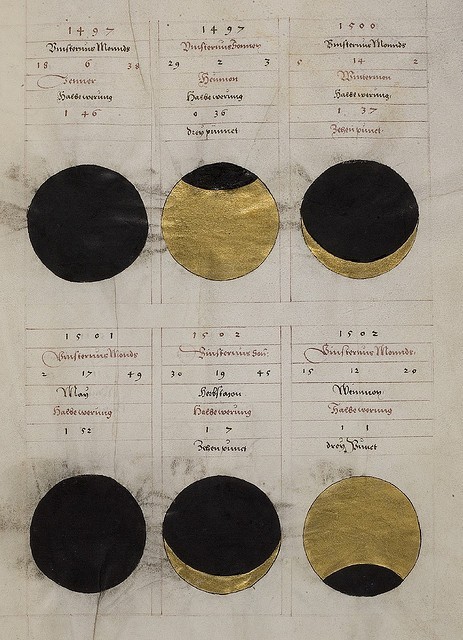 1497
Vinsternus Monnds
18 6 38
Jenner
Halbe werung
1 46
1497
Vinsternus Sonner
29 2 3
Heumon
Halbe werung
0 36
drey punnct
1500
Vinsternus Monnds
14 2
Wintermon
Halbe werung
1 37
Zehen punct
1501
Vinsternus Monds
2 17 49
May
Halbe werung
1 52
1502
Vinsternus
30 19 45
Herbstmon
Halbe werung
1 7
Zehen punct
1502
Vinsternus Monnds
15 12 20
Halbe werung
1 1
drey Punct